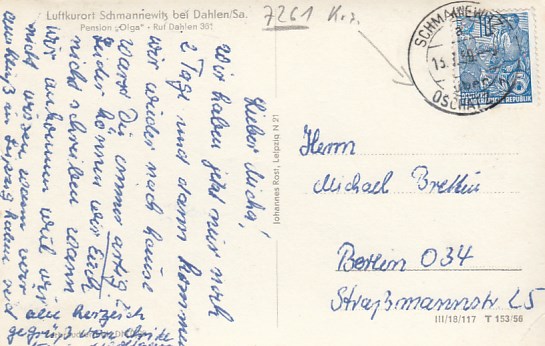 Luftkurort Schmannewitz bei Dahlen/Sa.
Pension „Olga" - Ruf Dahlen 301
7261 Krs.
SCHMANNEWITZ
a
OSCHATZ
DEUTSCHE DEMOKRATISCHE REPUBLIK
Lieber Micha!
Wir haben jetzt nur noch
2 Tage und dann kommen
wir wieder nach hause
Warst Du immer artig?
Leider können wir Euch
nicht schreiben wann
wir ankommen weil wir
nicht wissen wenn wir
Anschluß in Leipzig haben
alle herzlich
gegrüßt von
Johannes Rost, Leipzig N 21
Herrn
Michael
Berlin 034
Straßmannstr. 25
III/18/117 T 153/56